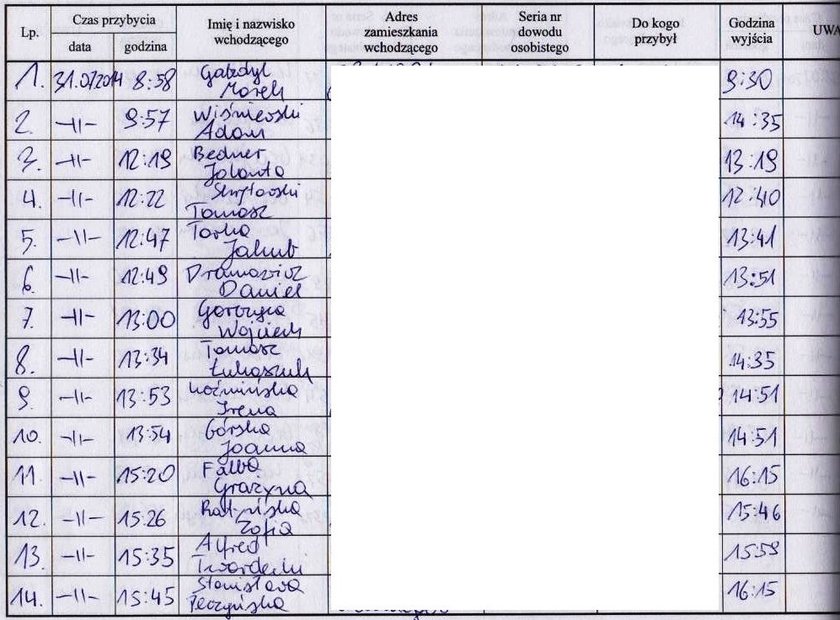 Lp. Czas przybycia Imię i nazwisko wchodzącego Adres zamieszkania wchodzącego Seria nr dowodu osobistego Do kogo przybył Godzina wyjścia UWA
data godzina
1. 31.07.2014 8:58 Gabdyl Marek 9:30
2. -II- 9:57 Wiśniewski Adam 14:35
3. -II- 12:19 Bedner Jolanta 13:19
4. -II- 12:22 Tomasz 12:40
5. -II- 12:47 Torka Jakub 13:41
6. -II- 12:49 Dramowicz Daniel 13:51
7. -II- 13:00 Gorczyca Wojciech 13:55
8. -II- 13:34 Tomasz Łukaszuk 14:35
9. -II- 13:53 Koźmińska Irena 14:51
10. -II- 13:54 Górska Joanna 14:51
11. -II- 15:20 Falba Grażyna 16:15
12. -II- 15:26 Zofia 15:46
13. -II- 15:35 Alfred Twardecki 15:59
14. -II- 15:45 Stanisława Pęczyńska 16:15